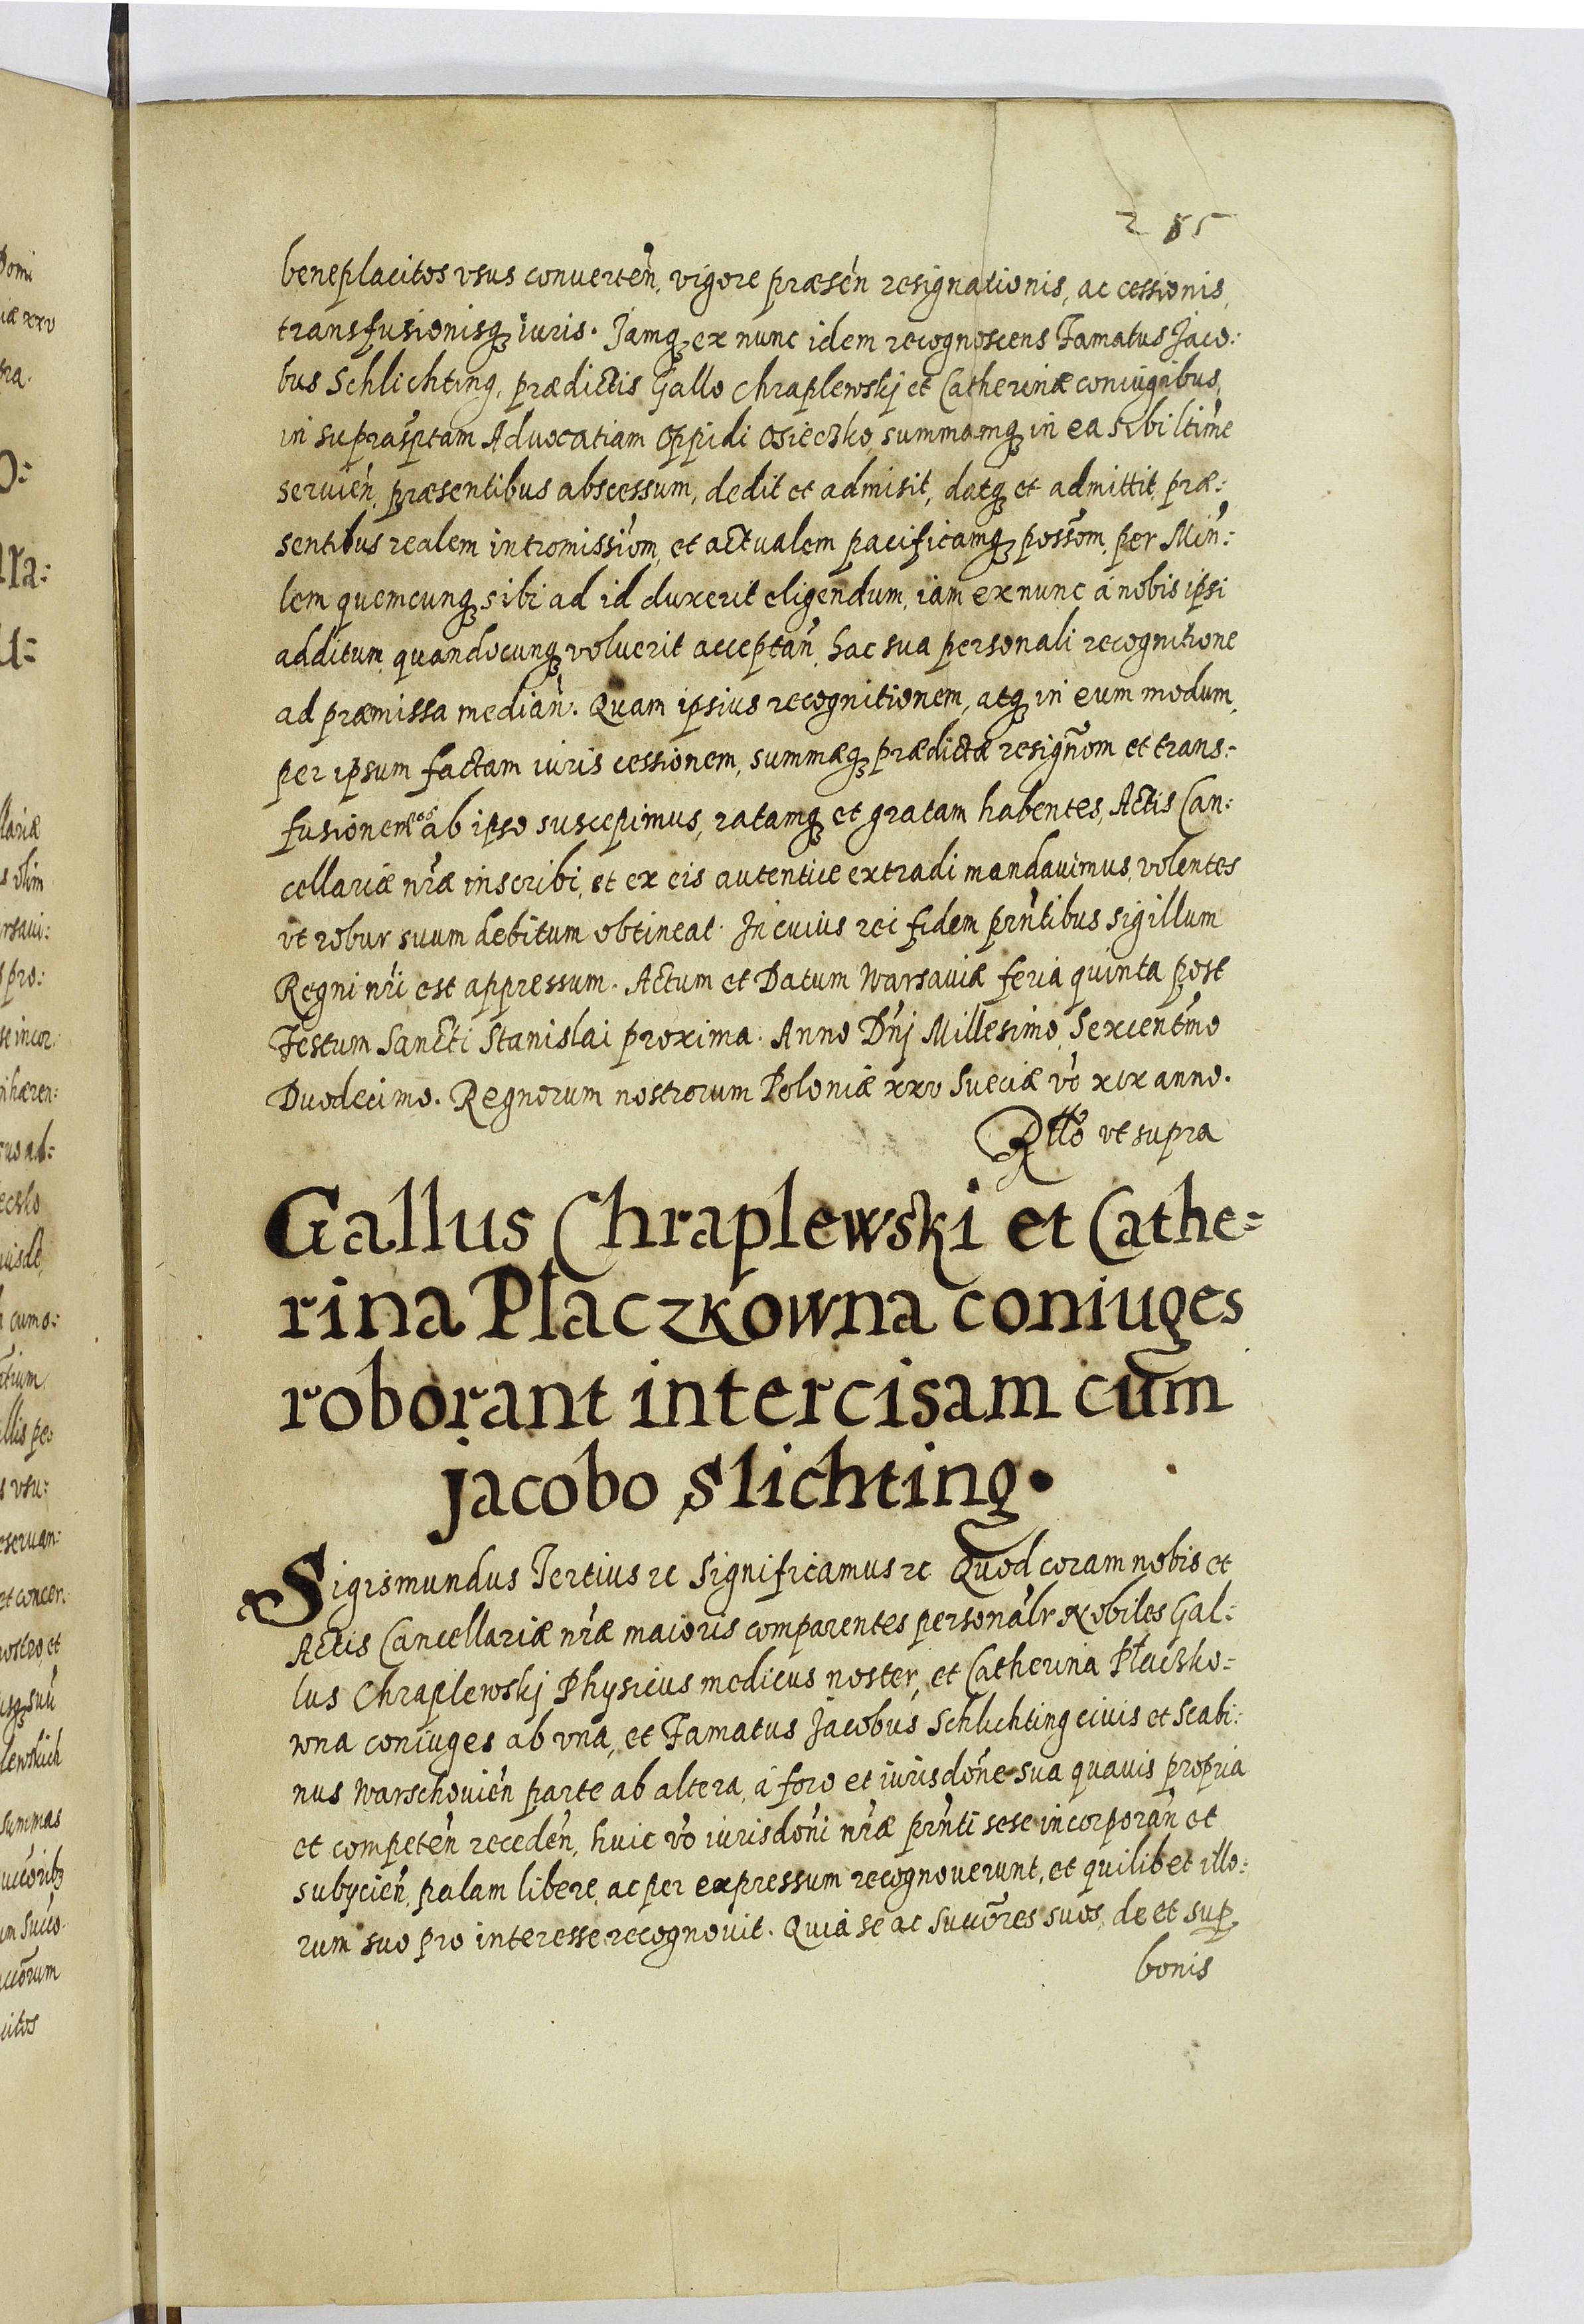 285
beneplacitos vsus conuerteñ, vigore præseñ resignationis, ac cessionis,
transfusionisqꝫ iuris. Jamqꝫ ex nunc idem recognoscens Famatus Jaco:
bus Schlichting, prædictis Gallo Chraplewskj et Catherinæ coniugibus,
in suprasptam Aduocatiam Oppidi Osieczko, summamqꝫ in ea sibi ltime
seruień, præsentibus abscessum, dedit et admisit, datqꝫ et admittit, præ:
sentibus realem intromissiom, et actualem pacificamqꝫ possom, per Miñ:
lem quemcunqꝫ sibi ad id duxerit eligendum, iam ex nunc á nobis ipsi
additum, quandocunqꝫ voluerit acceptañ, hac sua personali recognitione
ad præmissa mediañ. Quam ipsius recognitionem, atqꝫ in eum modum,
per ipsum factam iuris cessionem, summæqꝫ prædictæ resignom et trans:
fusionem ab ipso suscepimus, ratamqꝫ et gratam habentes, Actis Can:
cellariæ nr̃æ inscribi, et ex eis autentice extradi mandauimus, volentes
vt robur suum debitum obtineat. In cuius rei fidem prñtibus sigillum
Regni nr̃i est appressum. Actum et Datum Warsauiæ feria quinta post
Festum Sancti Stanislai proxima. Anno Dñj Millesimo, Sexcentmo
Duodecimo. Regnorum nostrorum Poloniæ xxv Sueciæ vo xix anno.
Rtto vt supra
Gallus Chraplewski et Cathe=
rina Płaczkowna coniuges
roborant intercisam cum
jacobo slichting.
Sigismundus Tertius ꝛc Significamus ꝛc Quod coram nobis et
Actis Cancellariæ nr̃æ maioris comparentes personalr Nobiles Gal:
lus Chraplewskj Physicus medicus noster, et Catherina Płaczko:
wna coniuges ab vna, et Famatus Jacobus Schlichting ciuis et Scabi:
nus Warschouień parte ab altera, á foro et iurisdoñe sua quauis propria
et competeñ recedeñ, huic vo iurisdoñi nr̃æ prñti sese incorporañ et
subycień, palam libere, ac per expressum recognouerunt, et quilibet illo:
rum suo pro interesse recognouit. Quia se ac Succores suos, de et sup
bonis